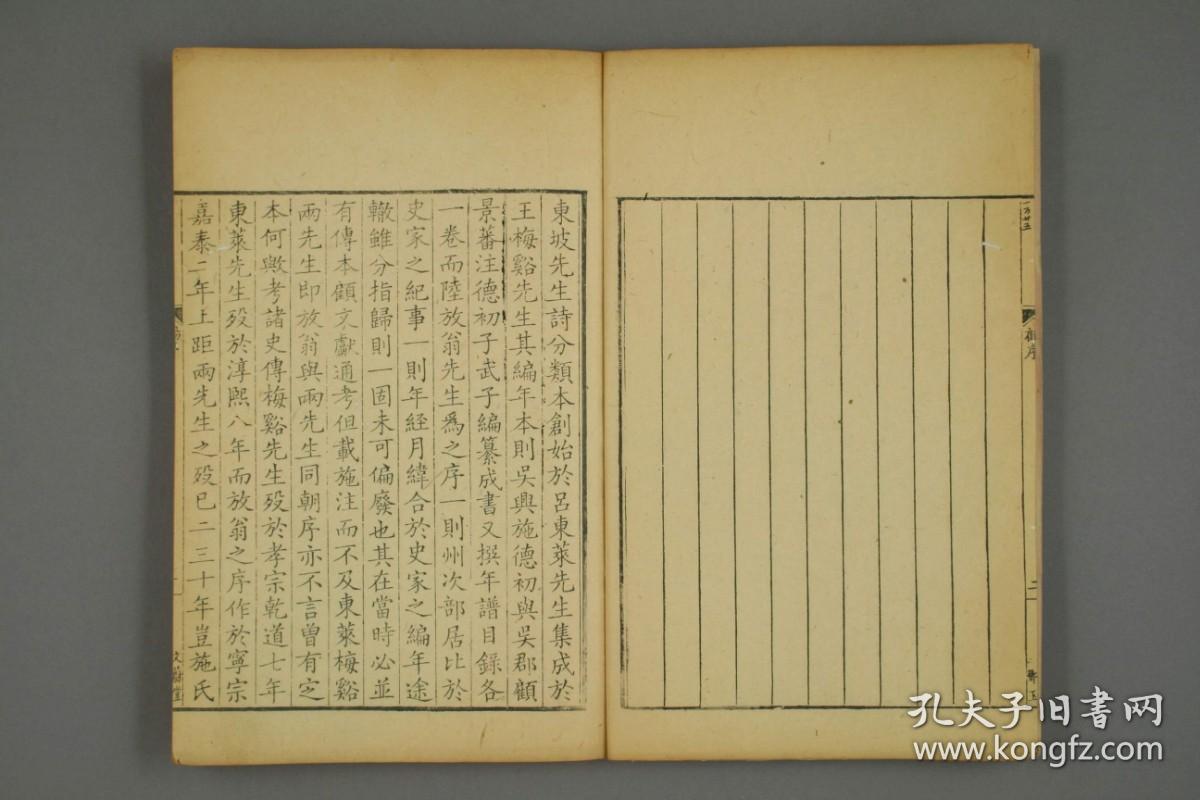 東坡先生詩分類本創始於呂東萊先生集成於
王梅谿先生其編年本則吳興施德初與吳郡顧
景蕃注德初子武子編纂成書又撰年譜目錄各
一卷而陸放翁先生爲之序一則州次部居比於
史家之紀事一則年経月緯合於史家之編年途
轍雖分指歸則一固未可偏廢也其在當時必並
有傳本顧文獻通考但載施注而不及東萊梅谿
兩先生即放翁與兩先生同朝序亦不言曽有㝎
本何歟考諸史傳梅谿先生歿於孝宗乾道七年
東萊先生歿於淳熙八年而放翁之序作於寧宗
嘉泰二年上距兩先生之歿已二三十年豈施氏
孔夫子旧書网
www.kongfz.com